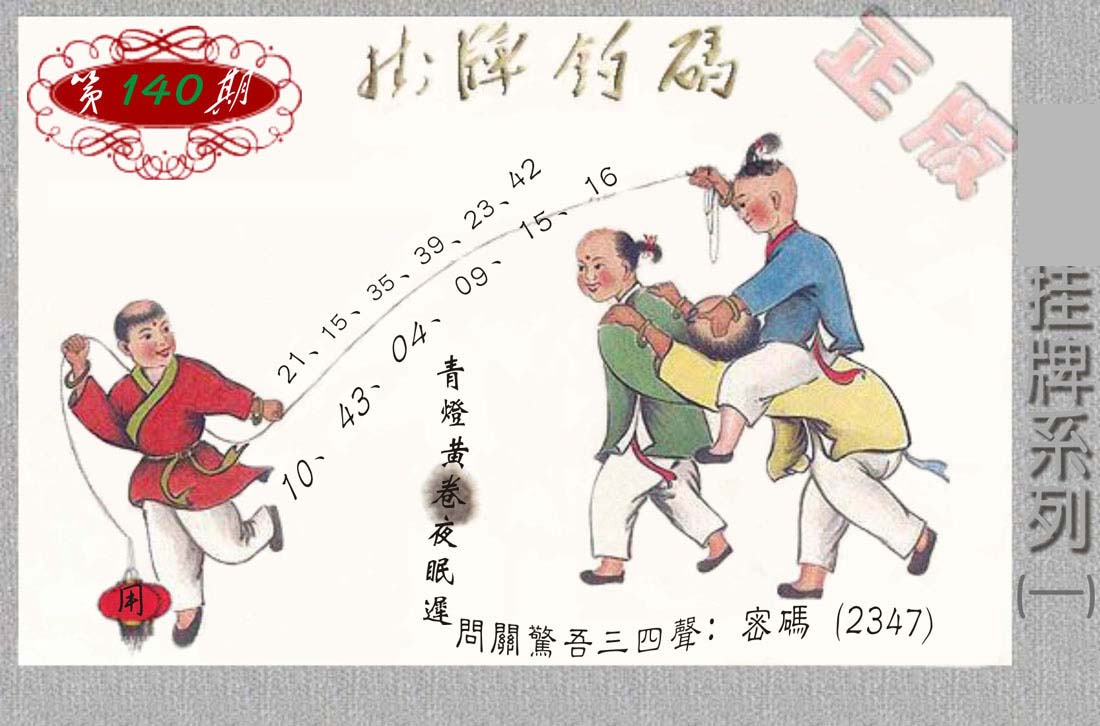 第140期
掛牌釣碼
正版
21、15、35、39、23、42
10、43、04、09、15、16
青燈黃卷夜眠遲
問關驚吾三四聲：密碼（2347）
挂牌系列(一)